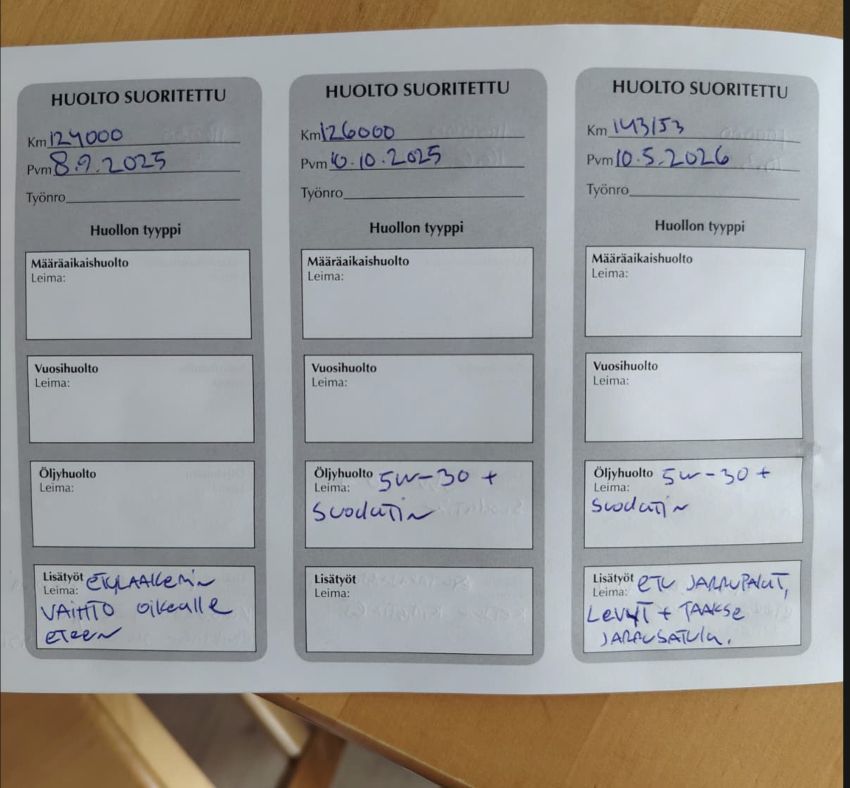 HUOLTO SUORITETTU
Km 124000
Pvm 8.9.2025
Työnro
Huollon tyyppi
Määräaikaishuolto
Leima:
Vuosihuolto
Leima:
Öljyhuolto
Leima:
Lisätyöt
Leima: etulaakerin
VAIHTO oikealle
eteen
HUOLTO SUORITETTU
Km 126000
Pvm 10.10.2025
Työnro
Huollon tyyppi
Määräaikaishuolto
Leima:
Vuosihuolto
Leima:
Öljyhuolto 5W-30 +
Leima:
Suodatin
Lisätyöt
Leima:
HUOLTO SUORITETTU
Km 143153
Pvm 10.5.2026
Työnro
Huollon tyyppi
Määräaikaishuolto
Leima:
Vuosihuolto
Leima:
Öljyhuolto 5W-30 +
Leima:
Suodatin
Lisätyöt
Leima: etu JARRUPALAT,
LevyT + TAAKSe
JARRUSATULA.